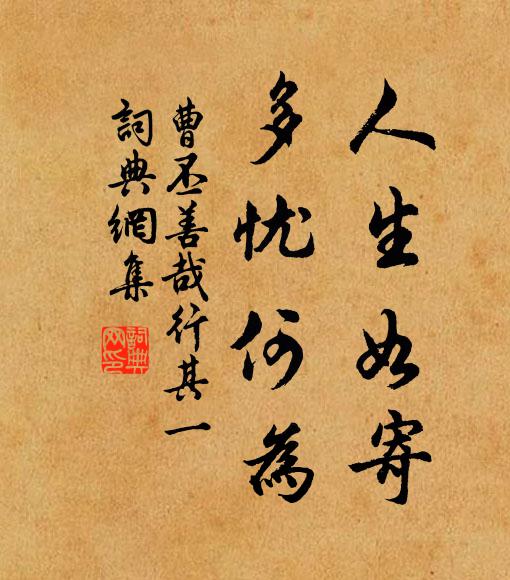 人生如寄
多忧何為
曹丕善哉行其一
詞典網集
詞典
网印